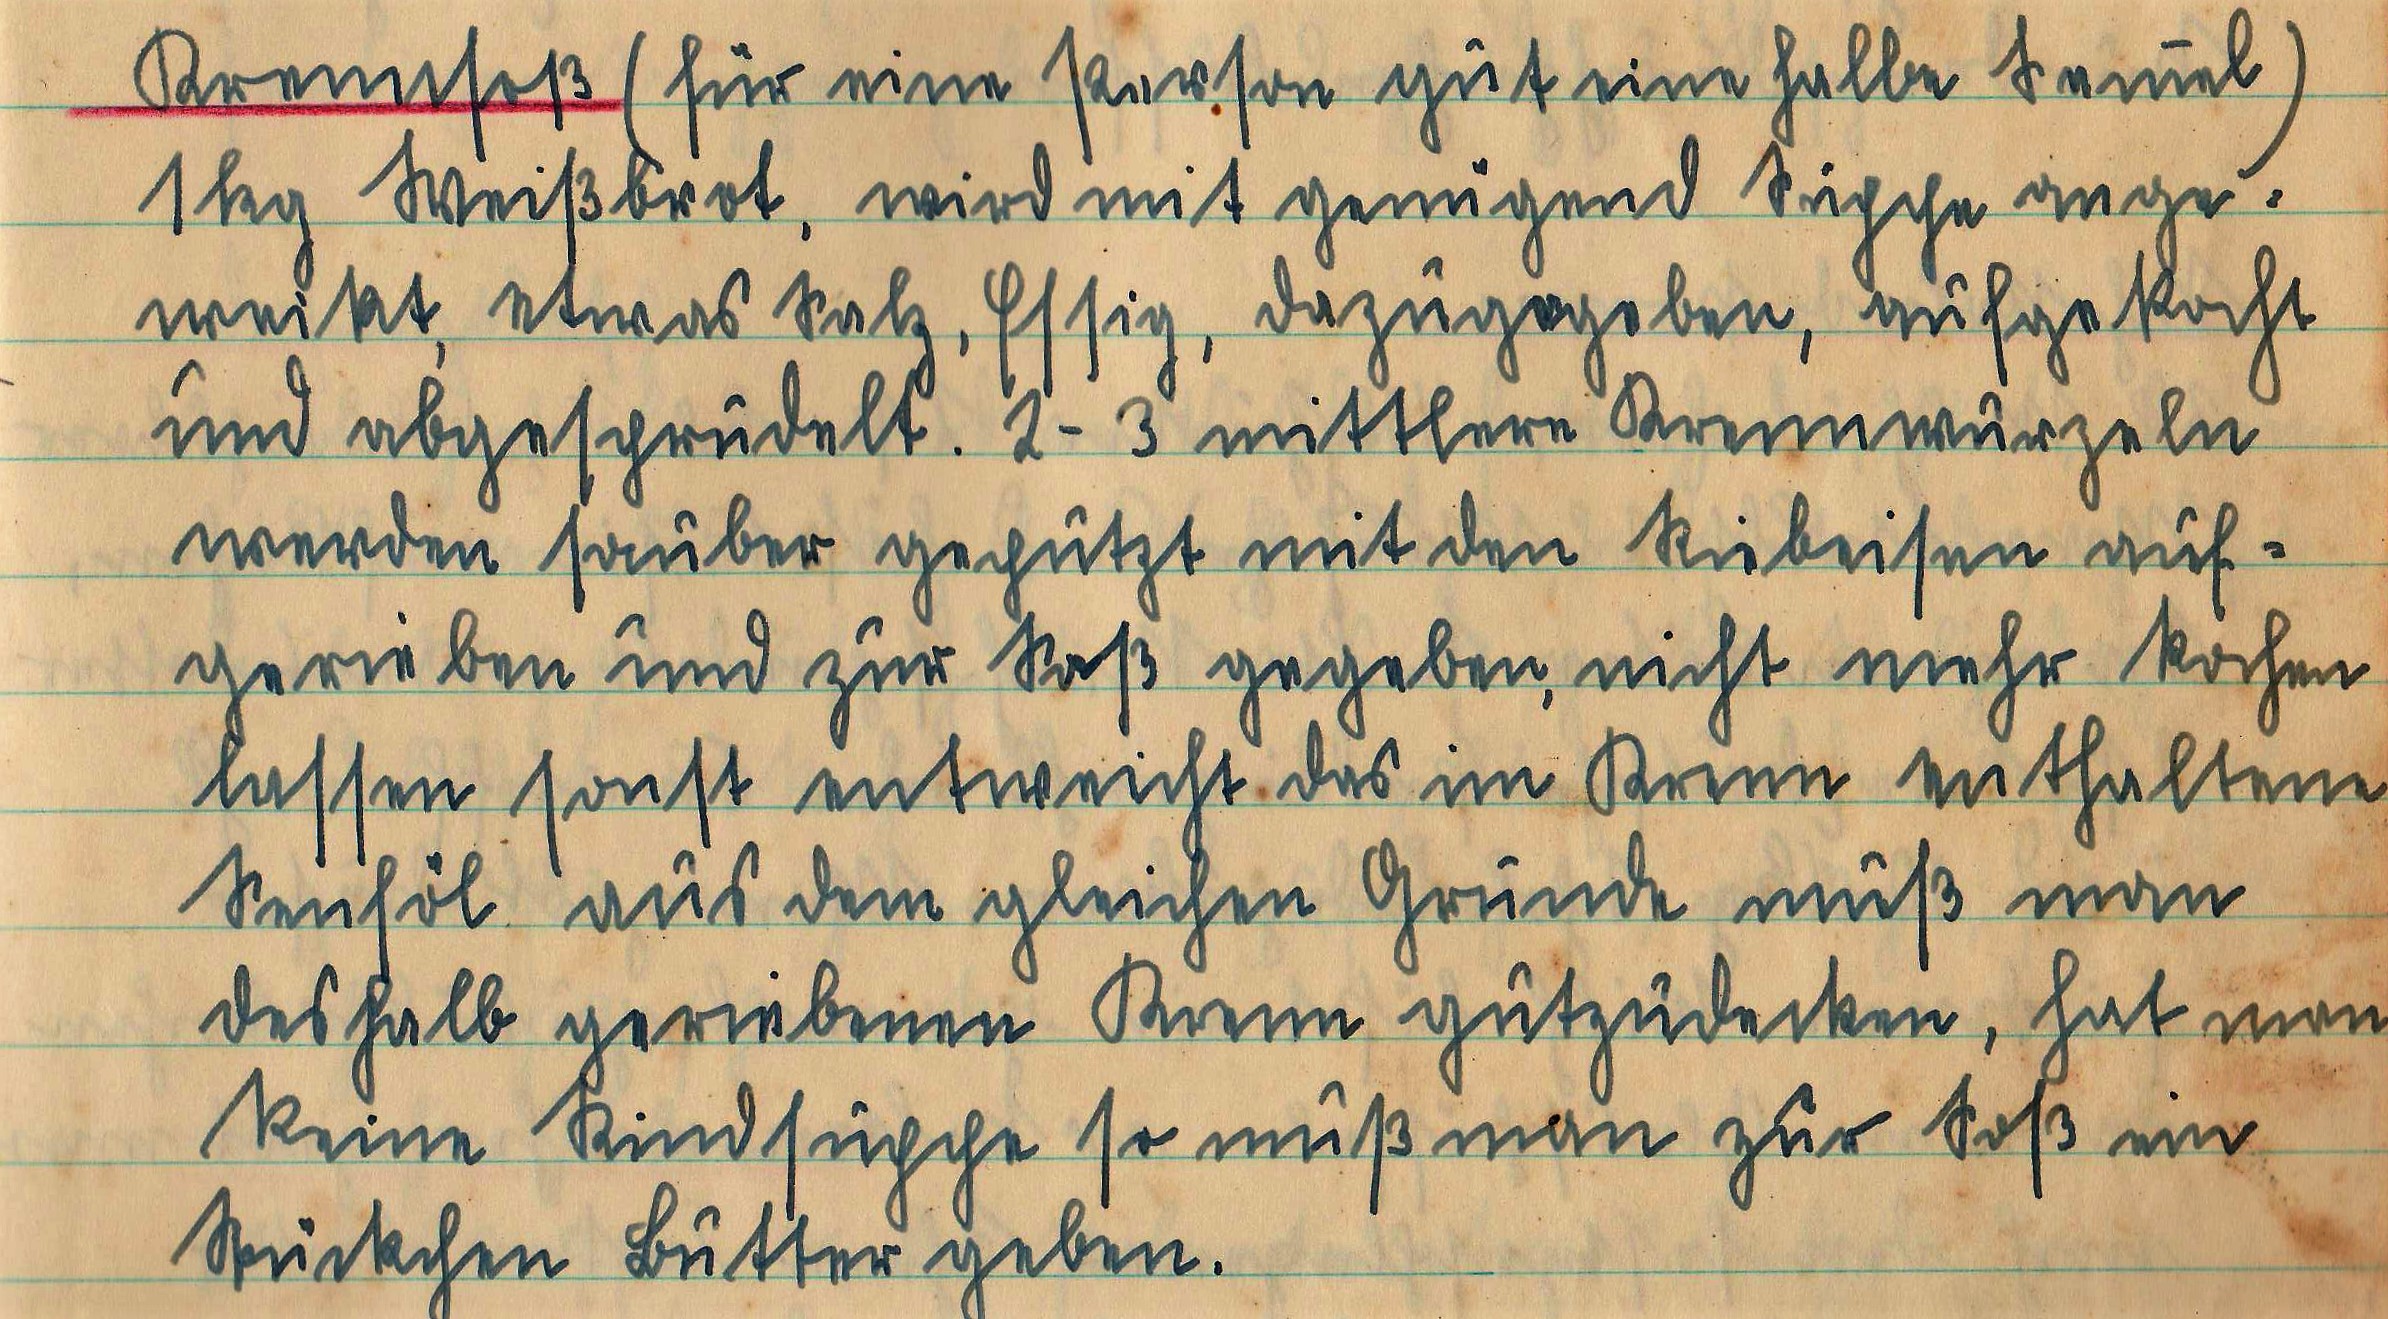 Krennsoß (für eine Person gut eine halbe Sem̄el)
1 kg Weißbrot, wird mit genügend Suppe ange-
weikt, etwas Salz, Essig, dazugegeben, aufgekocht
und abgesprudelt. 2-3 mittlere Krennwurzeln
werden sauber geputzt mit den Riebeisen auf=
gerieben und zur Soß gegeben, nicht mehr kochen
lassen sonst entweicht das im Krenn enthaltene
Senföl aus dem gleichen Grunde muß man
deshalb geriebenen Krenn gutzudecken, hat man
keine Rindsuppe so muß man zur Soß ein
Stückchen Butter geben.